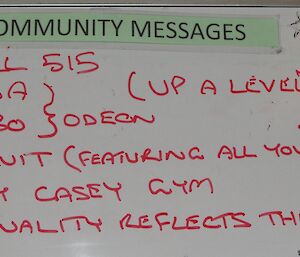 OMMUNITY MESSAGES
515
A } (UP A LEVEL
30 } ODEON
UIT (FEATURING ALL YO
Y CASEY GYM
NALITY REFLECTS TH